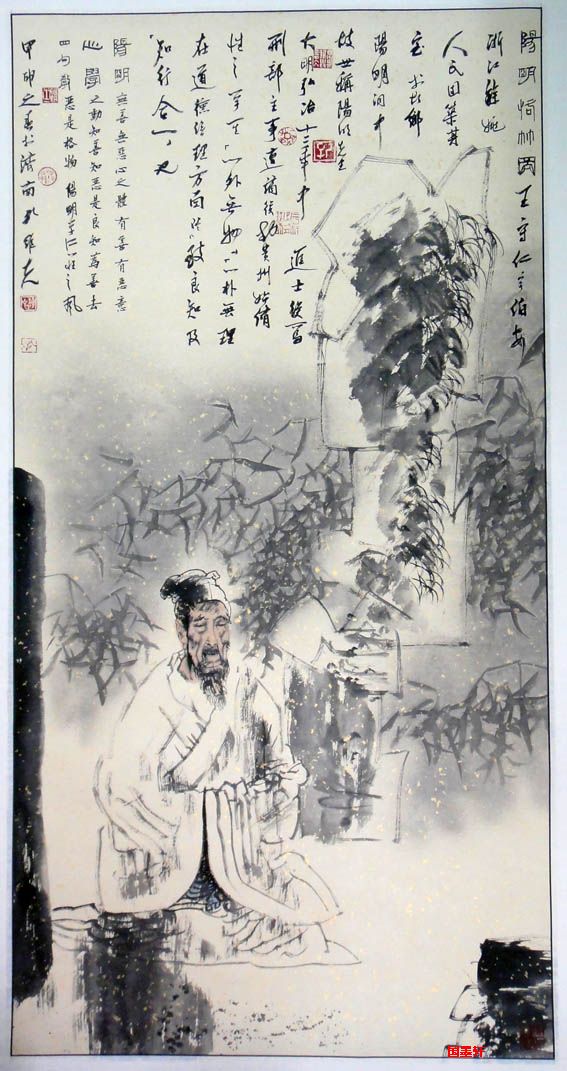 陽明悟竹圖 王守仁字伯安
浙江餘姚
人氏因築其
室於故鄉
陽明洞中
故世稱陽明先生
大明弘治十二年中 進士授爲
刑部主事直諭後貶貴州始倡
性之 "心外無物""心外無理
在道 方面 致良知及
"知行合一"也
陽明 無善無惡心之體有善有惡意
心學 之動知善知惡是良知爲善去
四句教 惡是格物 陽明
甲申之春於濟南孔維克
国墨轩